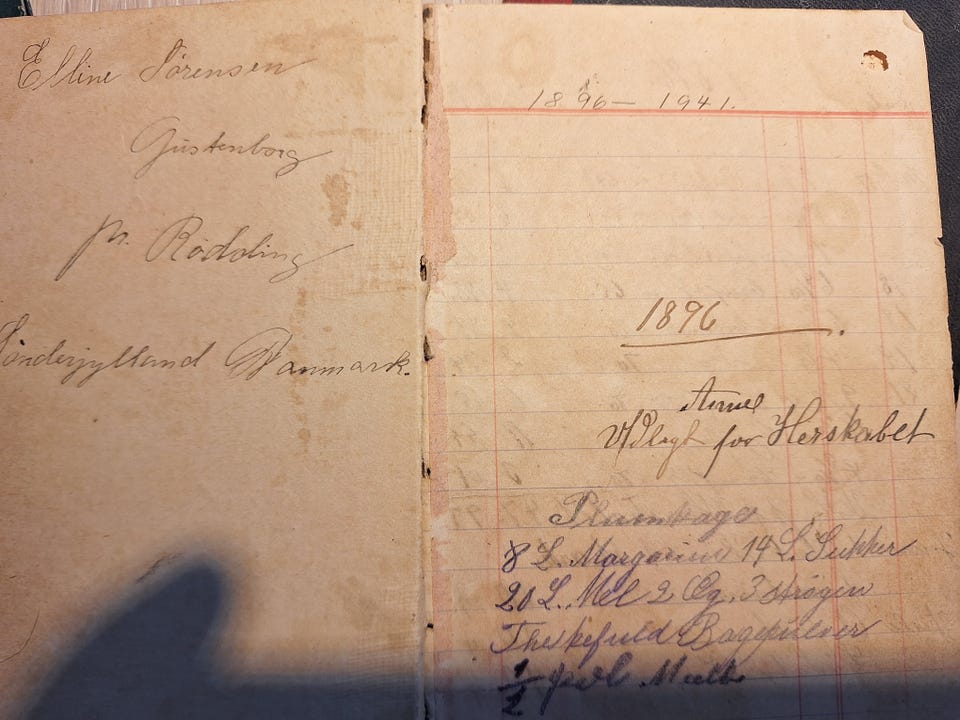 Elline Sörensen
Gustenborg
pr. Rödding
Sönderjylland Danmark.
1896 — 1941.
1896
Udlagt for Herskabet
8 L. Margarine 14 L. Sukker
20 L. Mel 2 Æg. 3 strögen
Theskefuld Bagepulver
1/2